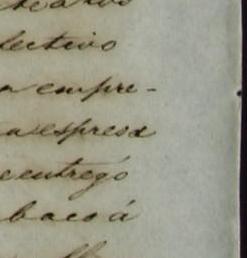 lectivo
a empre-
a espresa
e entregó
baco á